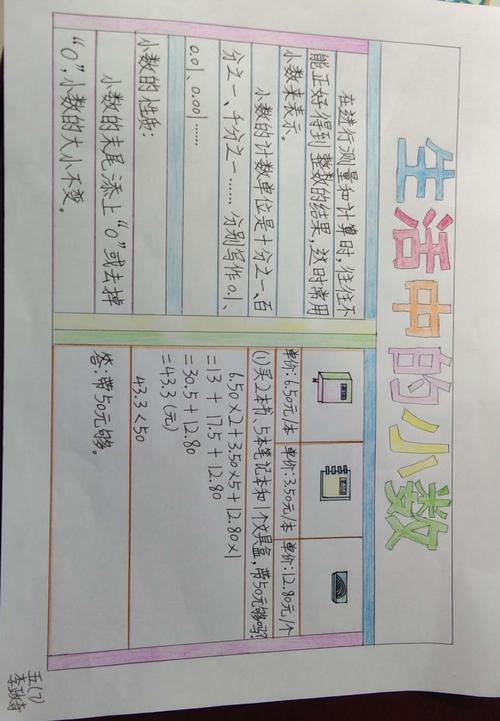 生活中的小数
在进行测量和计算时，往往不
能正好得到整数的结果，这时常用
小数来表示。
小数的计数单位是十分之一、百
分之一、千分之一……分别写作0.1、
0.01、0.001……
小数的性质：
小数的末尾添上“0”或去掉
“0”，小数的大小不变。
单价：6.50元/本 单价：3.50元/本 单价：12.80元/个
(1)买2本书、5本笔记本和1个文具盒，带50元够吗？
6.50×2+3.50×5+12.80×1
=13+17.5+12.80
=30.5+12.80
=43.3(元)
43.3<50
答：带50元够。
五(7)